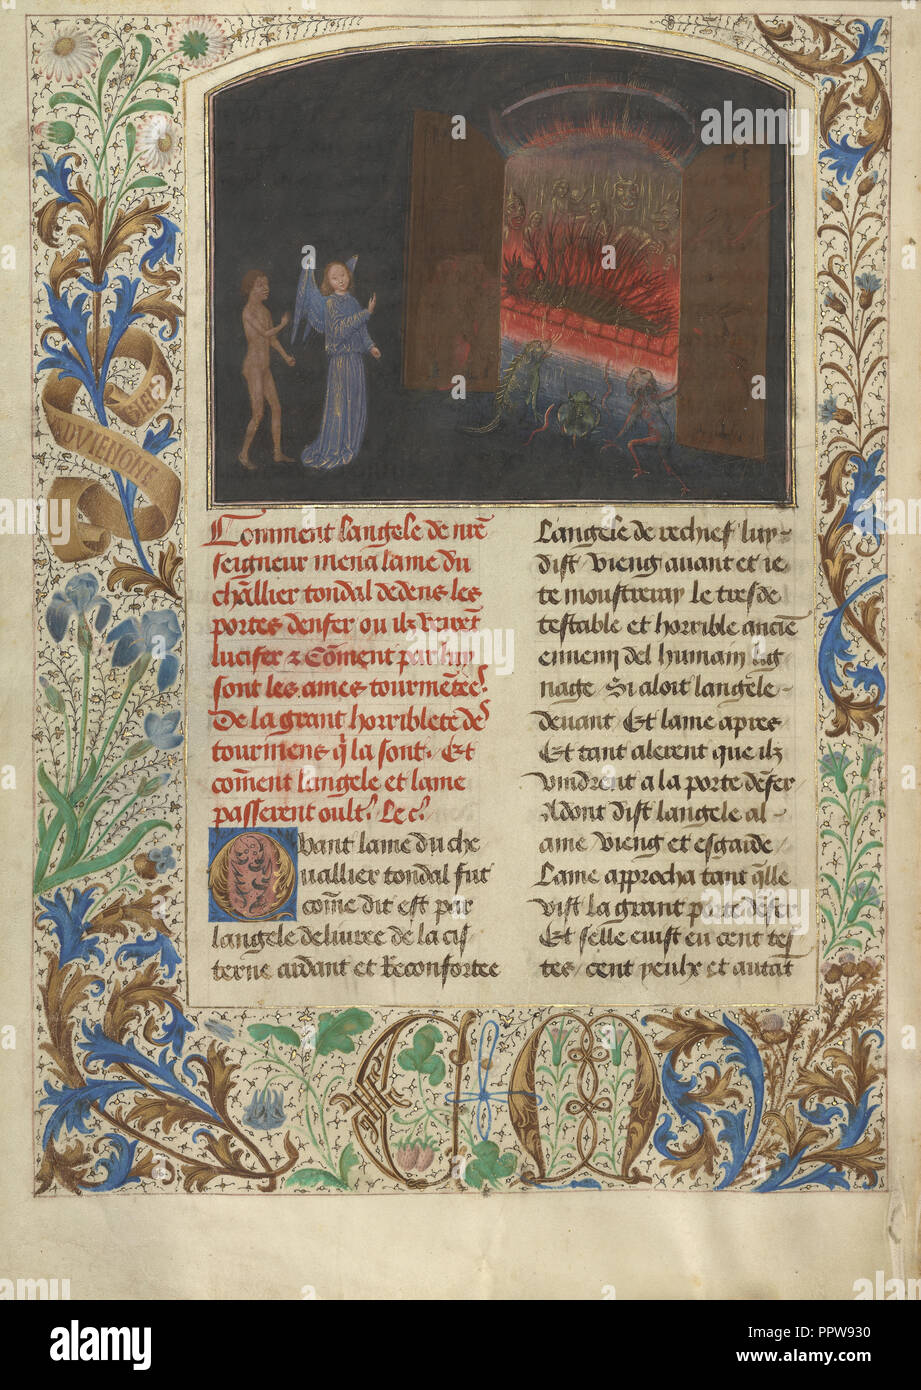 BIEN
ADVIENGNE
Comment langele de nr̄e
seigneur mena lame du
chl̄lier tondal dedens les
portes denfer ou ilz virent
lucifer & Cōment par luy
sont les ames tourmētees
De la grant horriblete des
tourmens q̄ la sont. Et
cōment langele et lame
passerent oultre. Le c.
Quant lame du che
uallier tondal fut
cōme dit est par
langele deliuree de la cis
terne ardant et Reconfortee
Langele de rechief luy
dist / vieng auant et ie
te monstreray le tresde
testable et horrible anciēn
ennemy del humain lig
nage / Si aloit langele
deuant Et lame apres
Et tant alerent que ilz
vindrent a la porte dēfer
Adont dist langele al
ame / vieng et esgarde /
Lame approcha tant q̄lle
vist la grant porte dēfer
Et selle euist eu cent tes
tes / cent yeulx et autāt
C M
alamy stock photo
alamy
Image ID: PPW930
www.alamy.com